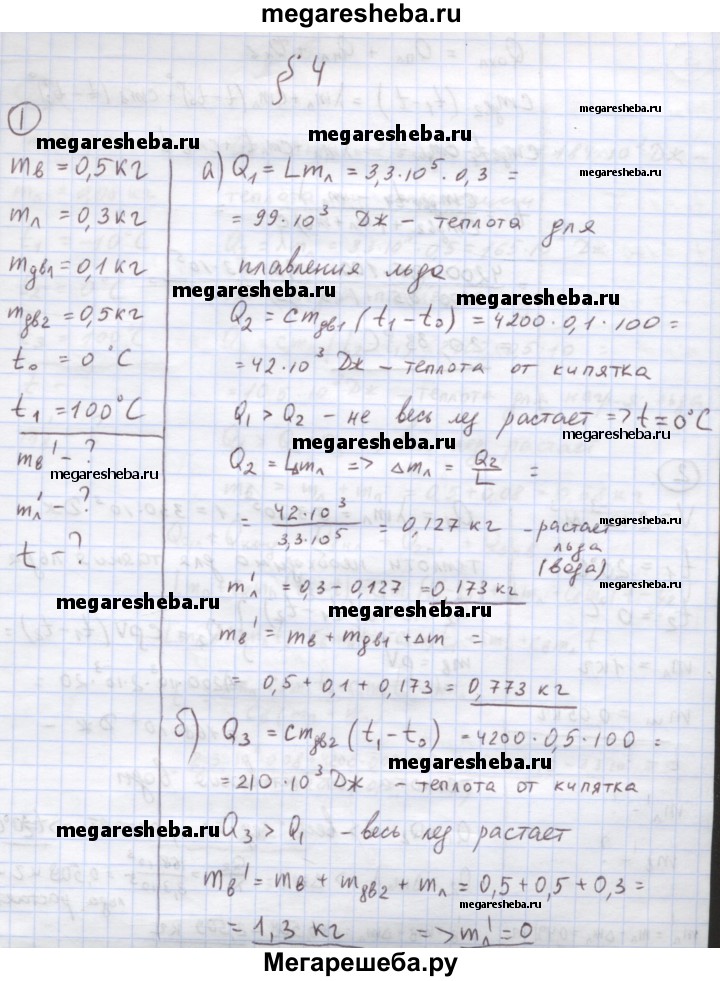 megaresheba.ru
§ 4
megaresheba.ru
①
megaresheba.ru
megaresheba.ru
mв = 0,5 кг
mл = 0,3 кг
mдв1 = 0,1 кг
mдв2 = 0,5 кг
t₀ = 0 °C
t₁ = 100°C
mв' - ?
megaresheba.ru
mл' - ?
t - ?
а) Q₁ = Lmл = 3,3·10⁵·0,3 =
= 99·10³ Дж – теплота для
плавления льда
megaresheba.ru
megaresheba.ru
Q₂ = cmдв1 (t₁ - t₀) = 4200·0,1·100 =
= 42·10³ Дж – теплота от кипятка
Q₁ > Q₂ – не весь лед растает => t = 0°C
megaresheba.ru
megaresheba.ru
Q₂ = LΔmл => Δmл = Q₂/L =
= 42·10³/3,3·10⁵ = 0,127 кг – растает
льда
(вода)
megaresheba.ru
mл' = 0,3 - 0,127 = 0,173 кг
megaresheba.ru
megaresheba.ru
mв' = mв + mдв1 + Δm =
= 0,5 + 0,1 + 0,173 = 0,773 кг
б) Q₃ = cmдв2 (t₁ - t₀) = 4200·0,5·100 =
megaresheba.ru
= 210·10³ Дж – теплота от кипятка
megaresheba.ru
Q₃ > Q₁ – весь лед растает
mв' = mв + mдв2 + mл = 0,5 + 0,5 + 0,3 =
megaresheba.ru
= 1,3 кг => mл' = 0
Мегарешеба.ру